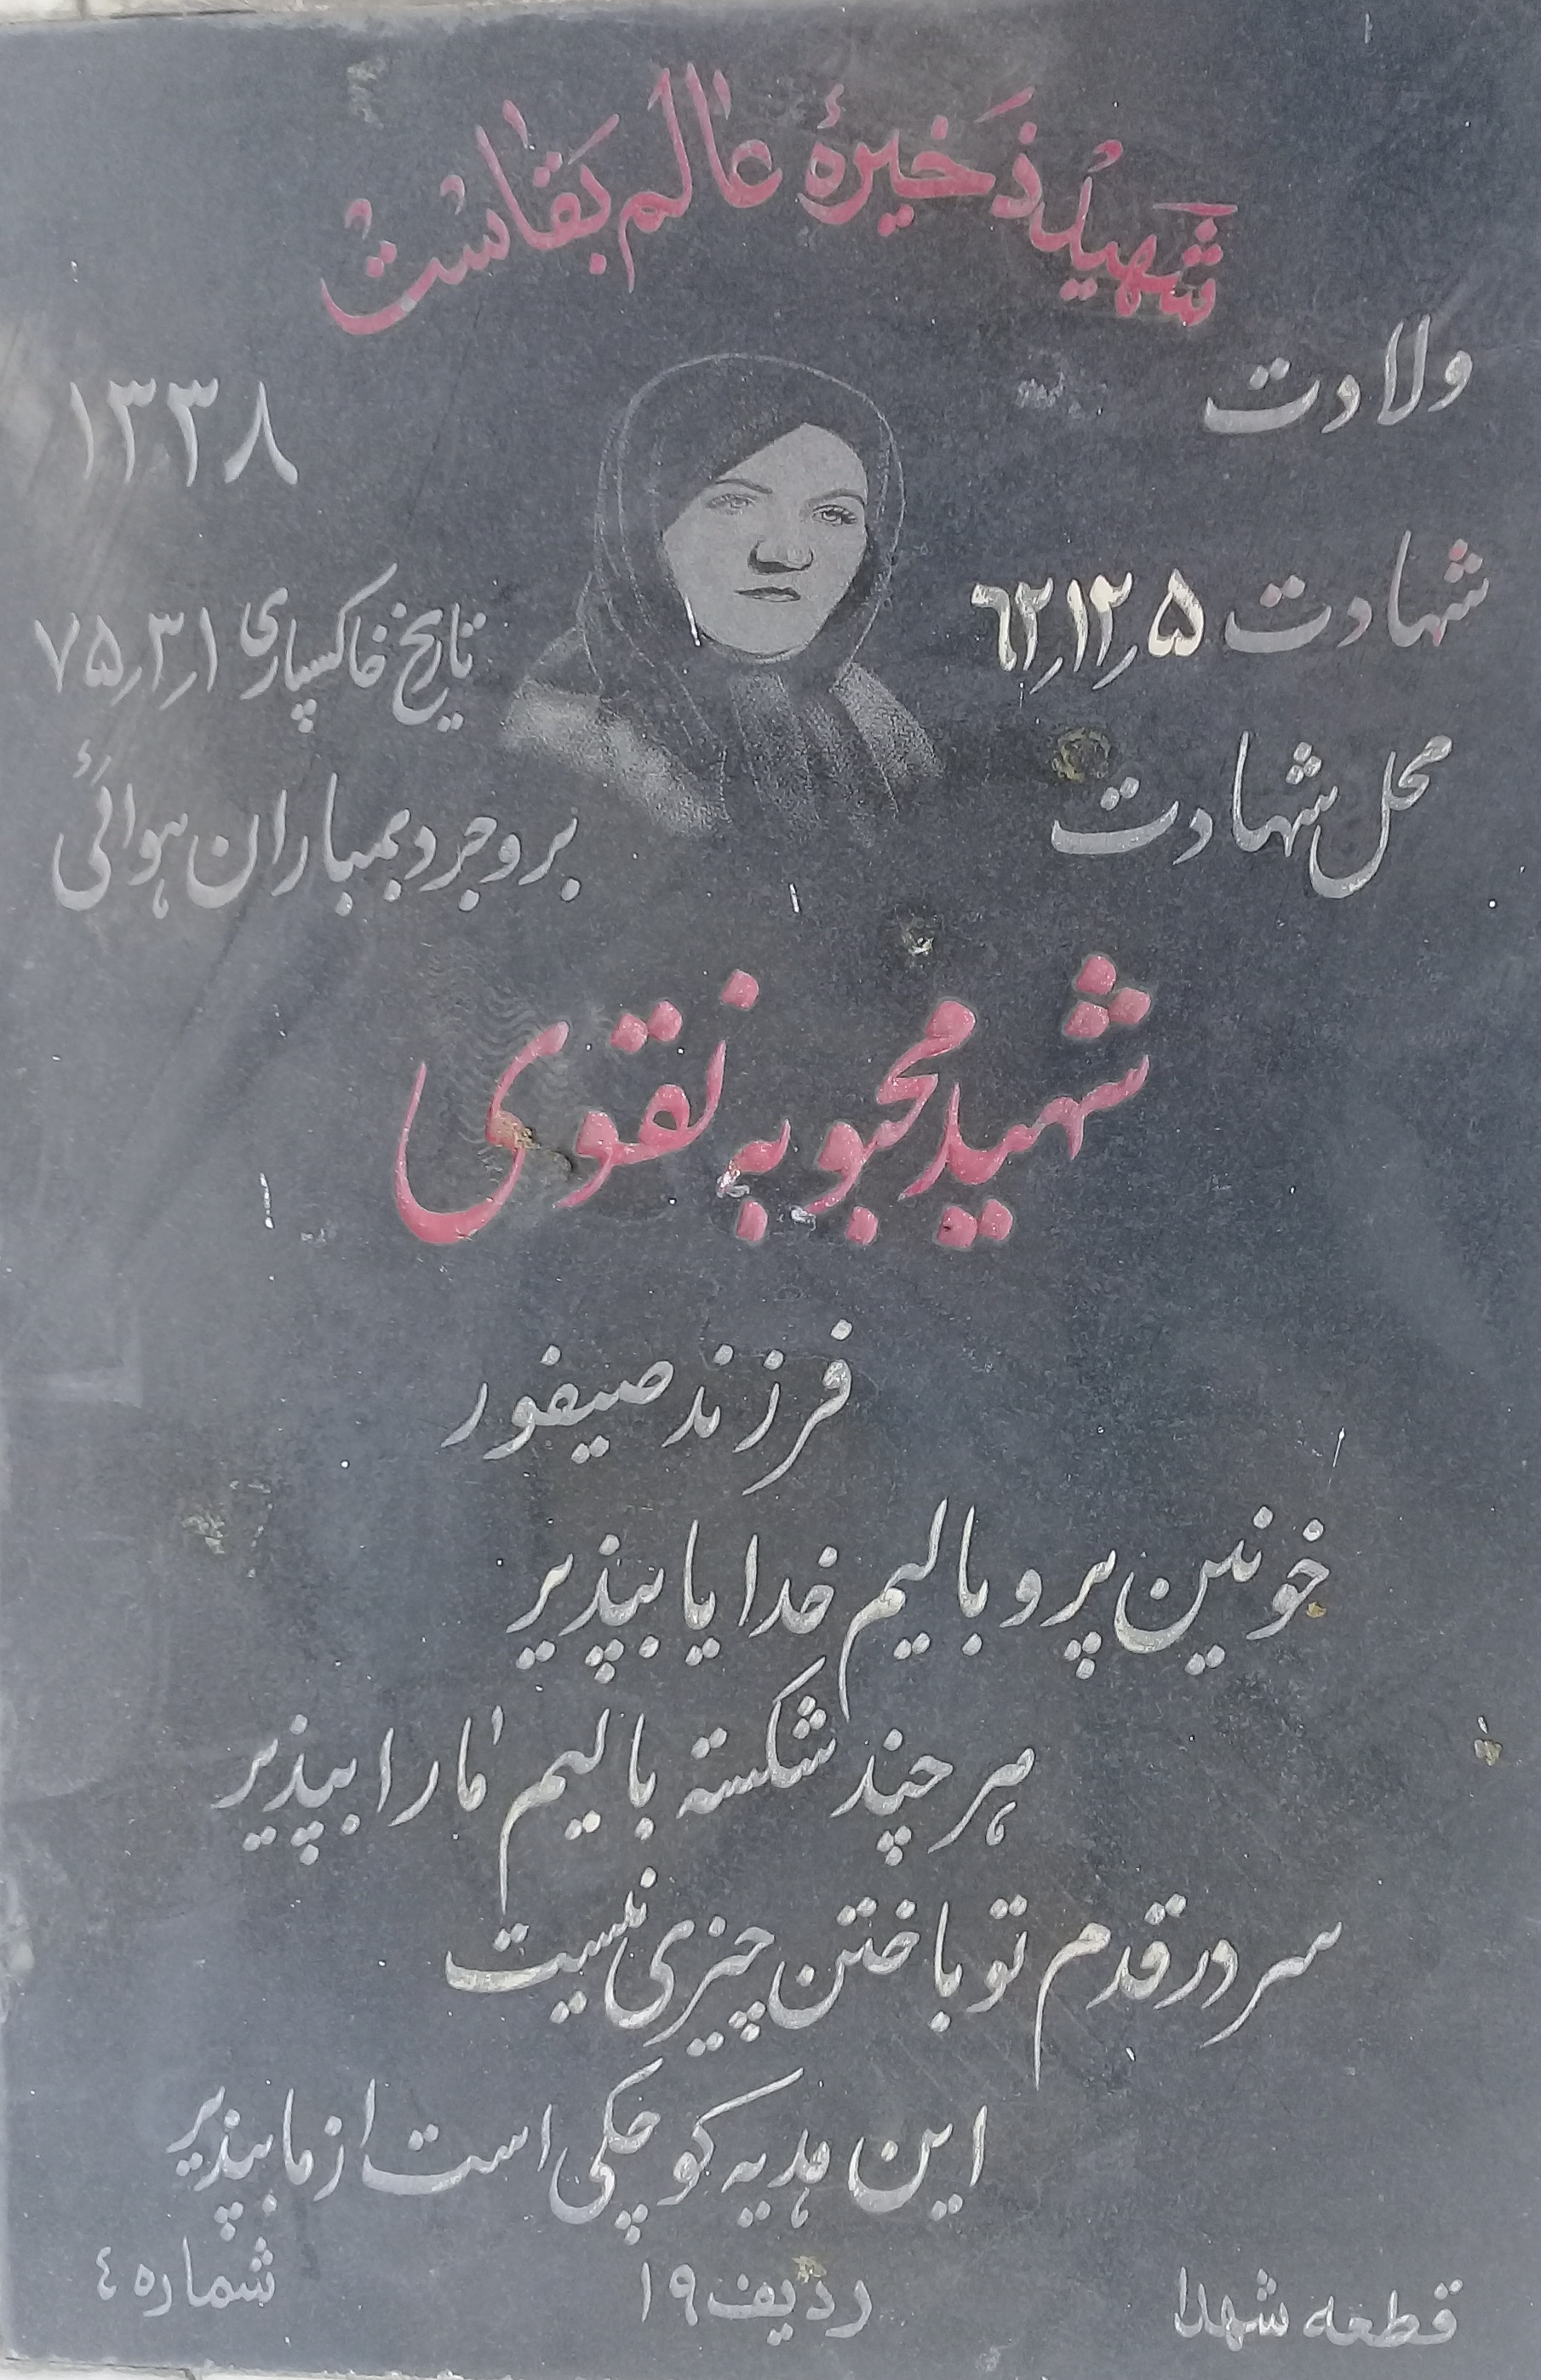 شهید ذخیرهٔ عالم بقاست
ولادت ۱۳۳۸
شهادت ۶۲٫۱۲٫۵ تاریخ خاکسپاری ۷۵٫۳٫۱
محل شهادت بروجرد بمباران هوائی
شهید محبوبه نقوی
فرزند صیفور
خونین پر و بالیم خدایا بپذیر
هر چند شکسته بالیم ما را بپذیر
سر در قدم تو باختن چیزی نیست
این هدیه کوچکی است از ما بپذیر
قطعه شهدا ردیف ۱۹ شماره ٤